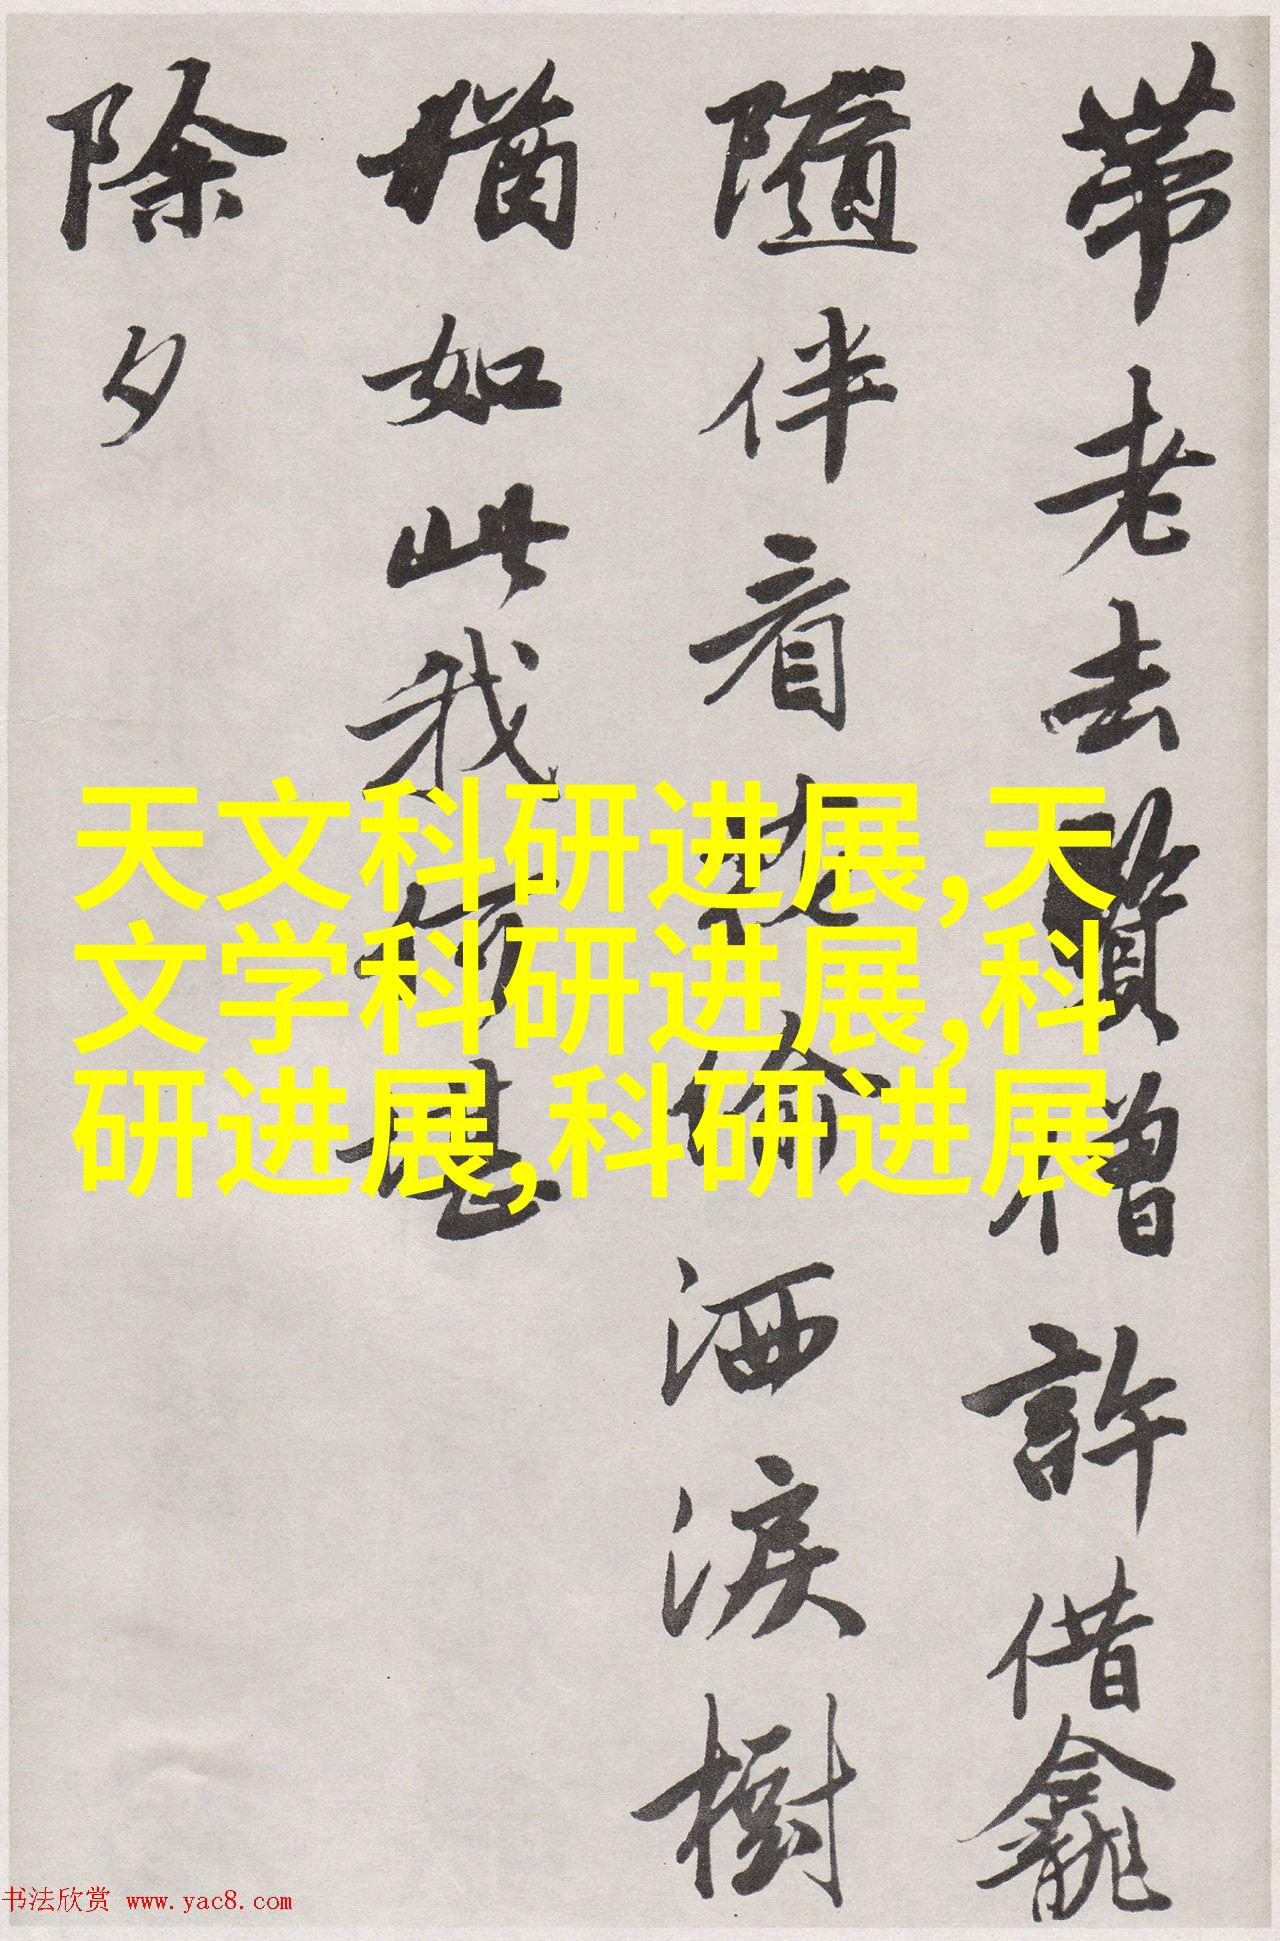 帶老去賢僧許借龕
隨伴看偷洒淚樹
猶如此我何堪
除夕
天文科研进展,天
文学科研进展,科
研进展,科研进展
书法欣赏 www.yac8.com